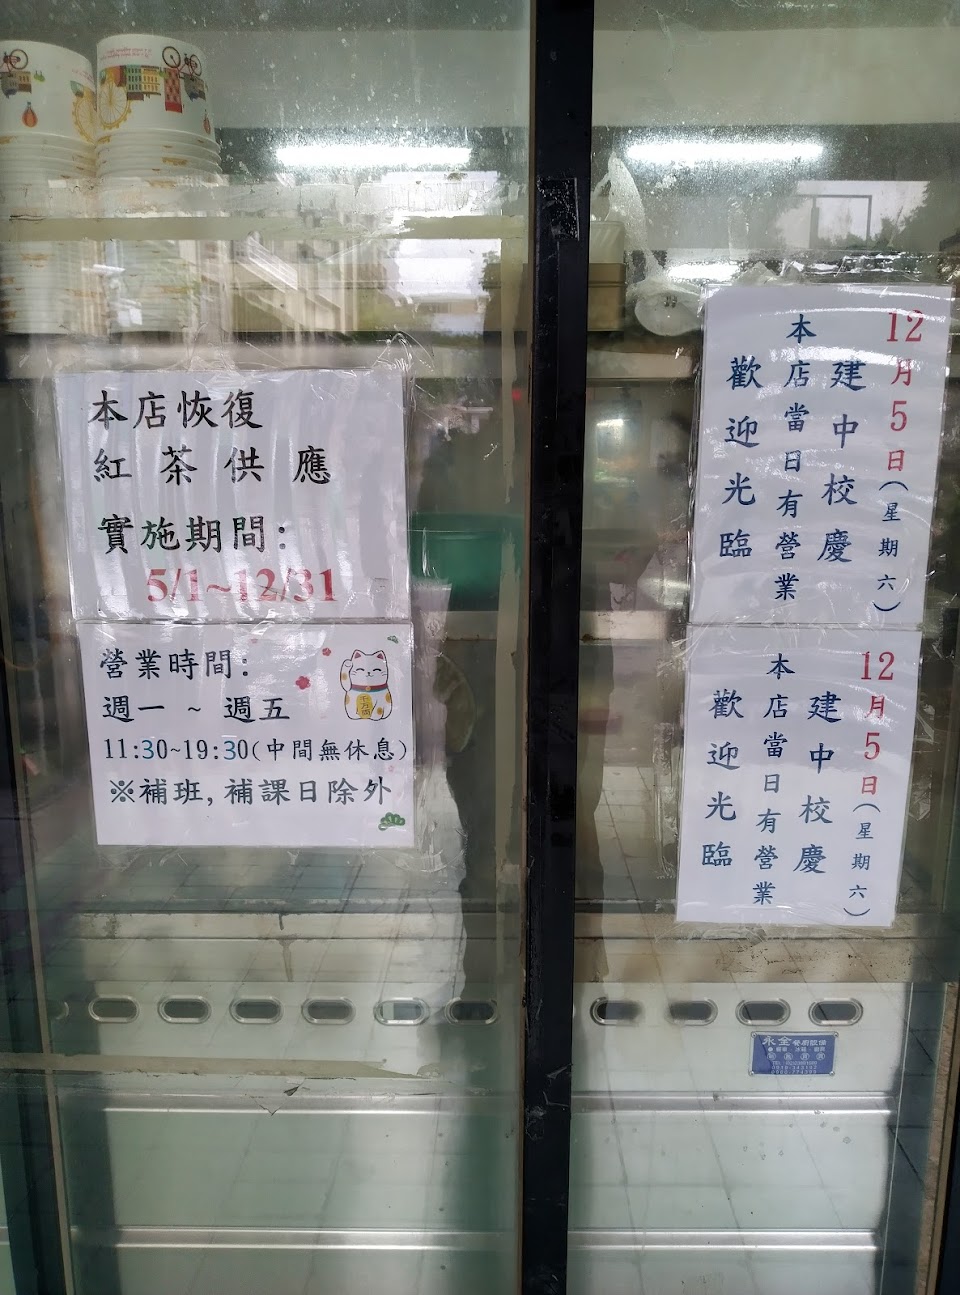 本店恢復
紅茶供應
實施期間：
5/1~12/31
營業時間：
週一 ~ 週五
11:30~19:30(中間無休息)
※補班,補課日除外
12月5日(星期六)
建中校慶
本店當日有營業
歡迎光臨
12月5日(星期六)
建中校慶
本店當日有營業
歡迎光臨
永全餐廚設備